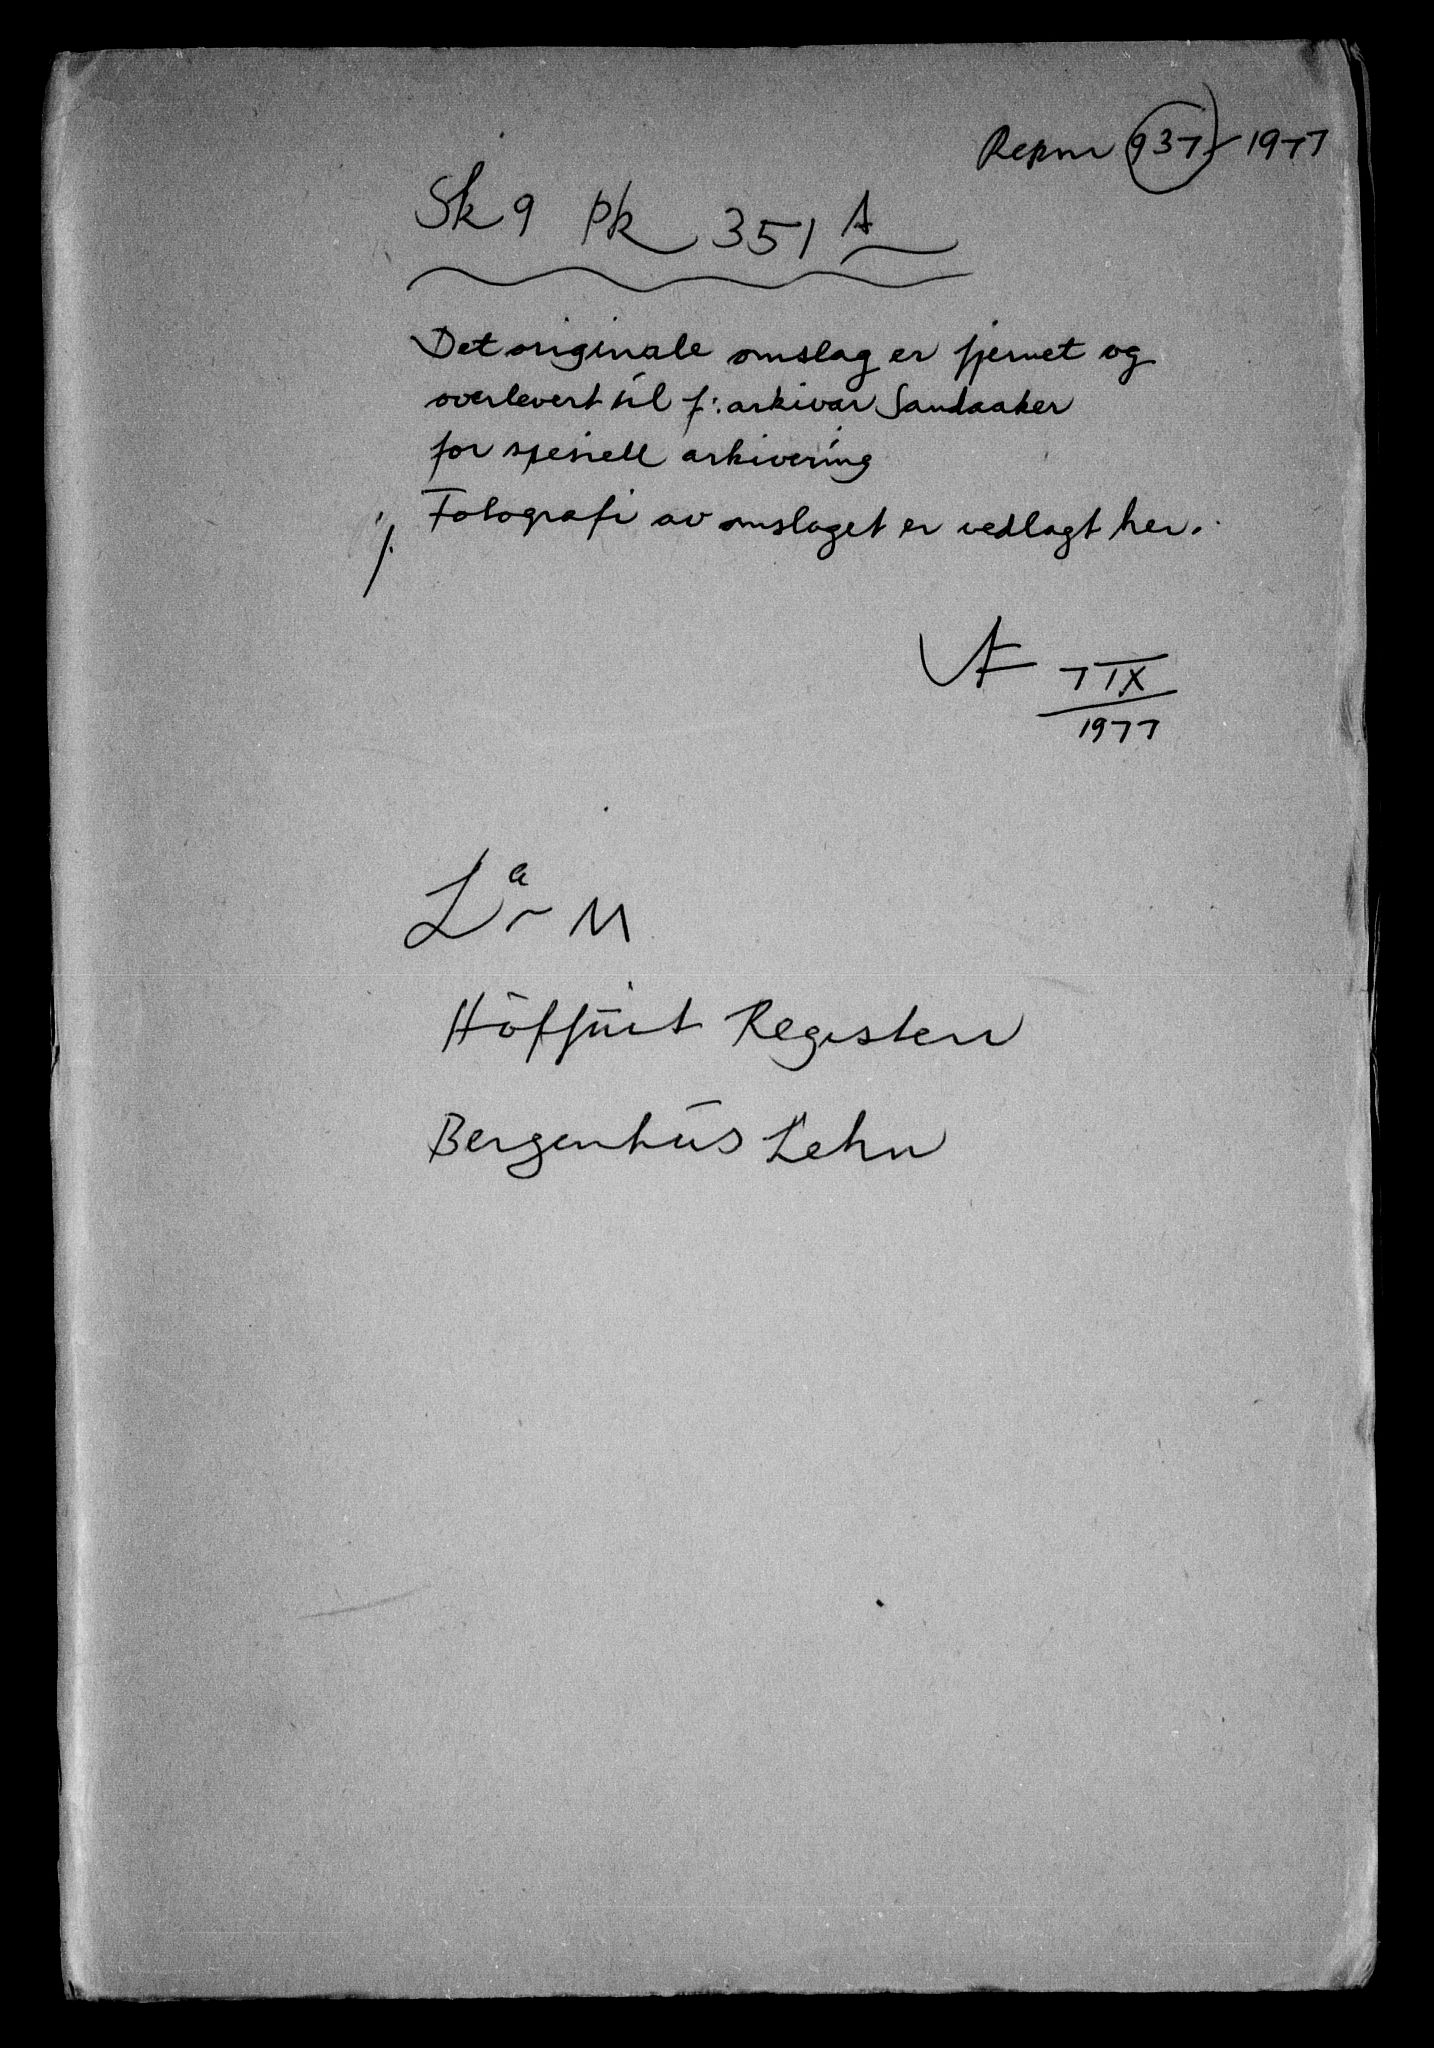 Repnr 937 - 1977
Sk 9 pk 351 A
Det originale omslag er fjernet og
overlevert til f: arkivar Sandaaker
for spesiell arkivering
Fotografi av omslaget er vedlagt her.
7 IX
1977
La M
Höffuit Register
Bergenhüs Lehn